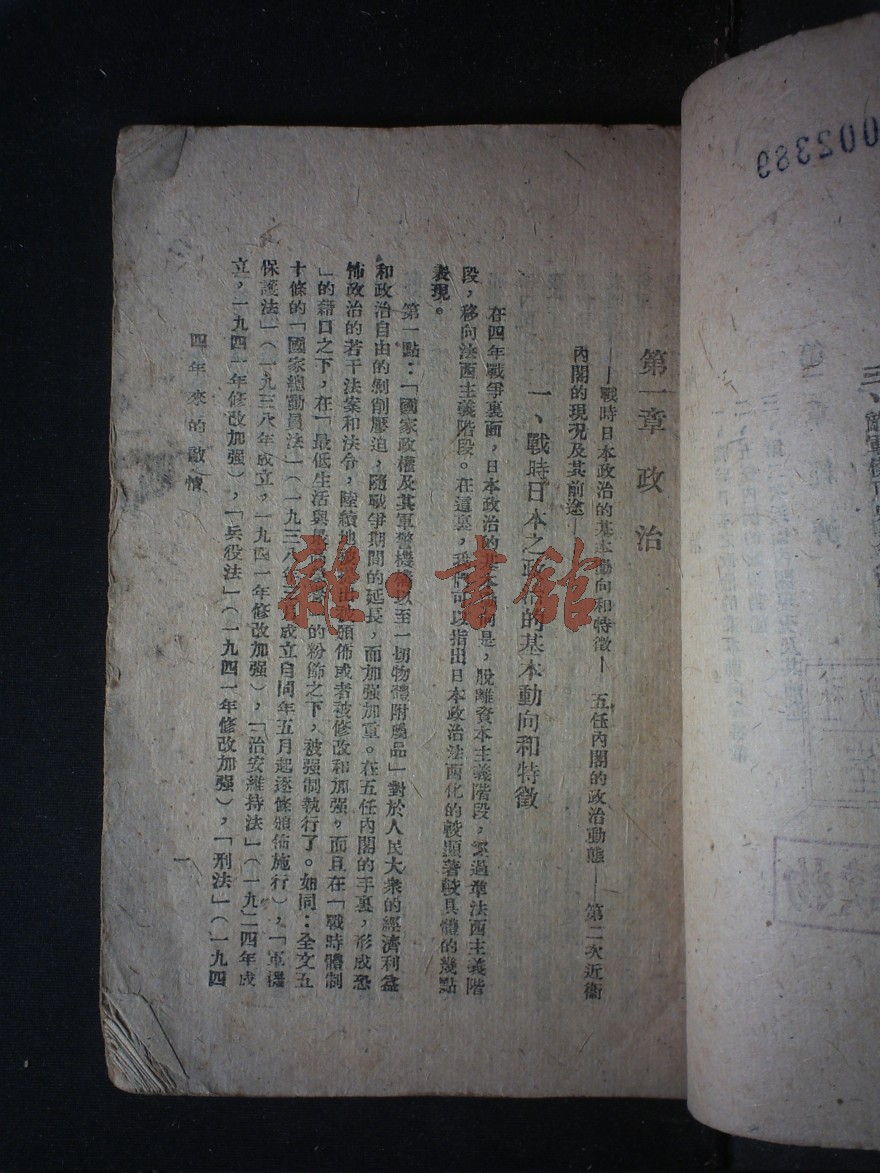 第一章　政治
——戰時日本政治的基本動向和特徵——　五任內閣的政治動態——　第二次近衞
內閣的現況及其前途——
一、戰時日本之政治的基本動向和特徵
在四年戰爭裏面，日本政治的基本動向是，脫離資本主義階段，經過準法西主義階
段，移向法西主義階段。在這裏，我們可以指出日本政治法西化的較顯著較具體的幾點
表現。
第一點：「國家政權及其軍警機構以至一切物體附屬品」對於人民大衆的經濟利益
和政治自由的剝削壓迫，隨戰爭期間的延長，而加强加重。在五任內閣的手裏，形成恐
怖政治的若干法案和法令，陸續地 頒佈或者被修改和加强，而且在「戰時體制
」的藉口之下，在「最低生活與 」的粉飾之下，被强制執行了。如同：全文五
十條的「國家總動員法」（一九三八年 月成立自同年五月起逐條頒佈施行），「軍機
保護法」（一九三八年成立，一九四一年修改加强），「治安維持法」（一九二四年成
立，一九四一年修改加强），「兵役法」（一九四一年修改加强），「刑法」（一九四
四年來的敵情
一
雜·書館
002389
三、敵軍